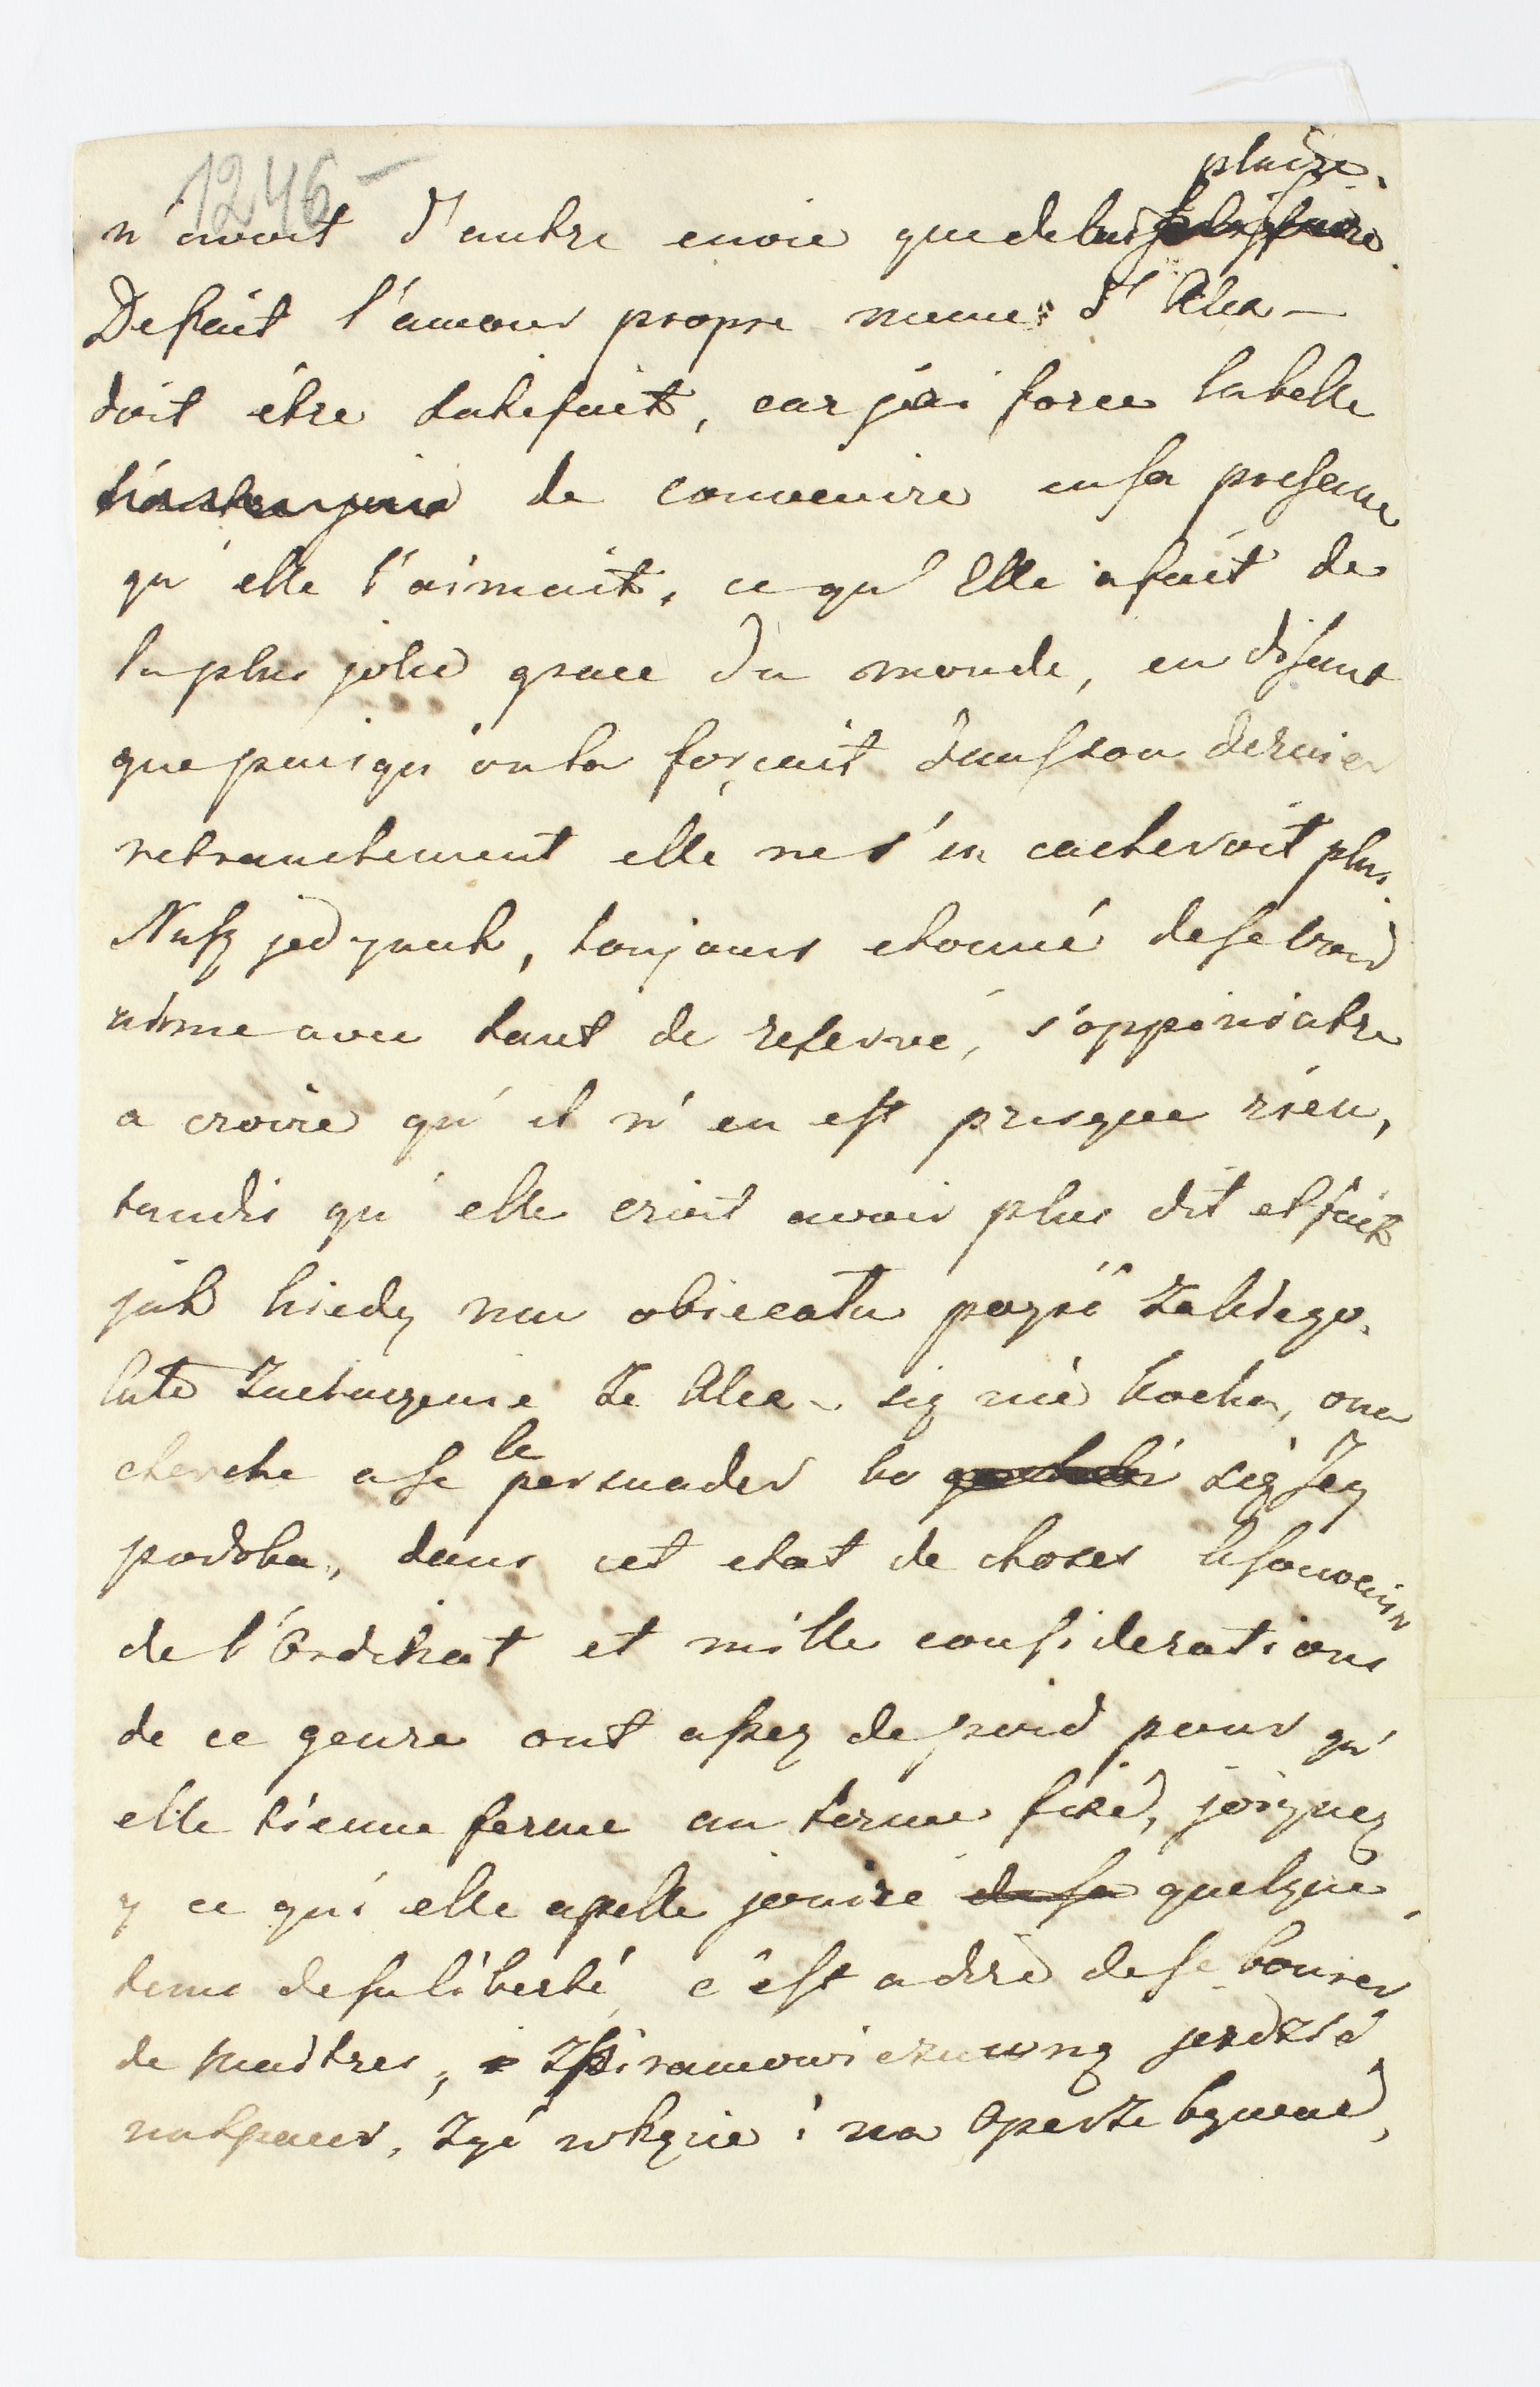 1246 -
plaire.
n'avoit d'autre envie que de lui
De fait l'amour propre meme d'Alex -
doit être satisfait, car j'ai force la belle
de convenire en sa presence
qu'elle l'aimait, ce qu'Elle a fait de
la plus jolie grace du monde, en disant
que puisqu'on la forçait dans son dernier
retranchement elle ne s'en cacheroit plus.
Nasz jedynak, toujours etonné de se voir
aimé avec tant de reserve, s'oppiniatre
a croire qu'il n'en est presque rien,
tandis qu'elle croit avoir plus dit et fait
jak kiedy na obiecatu pojść takiego.
lato Zachwycenie że Alex - się nie kocha, ona
cherche a se le persuader bo się Jey
podoba, dans cet etat de choses le souvenir
de l'Ordinat et mille considerations
de ce genre ont assez de poid pour qu'
elle tienne ferme au terme fixé, joignez
y ce qu'elle apelle jouire quelque
tems de sa liberté, c'est a dire de se bourer
de maitres, z Piramowiczuwną jezdzić
na spacer, żyć w Łęcie i na Operze bywać,